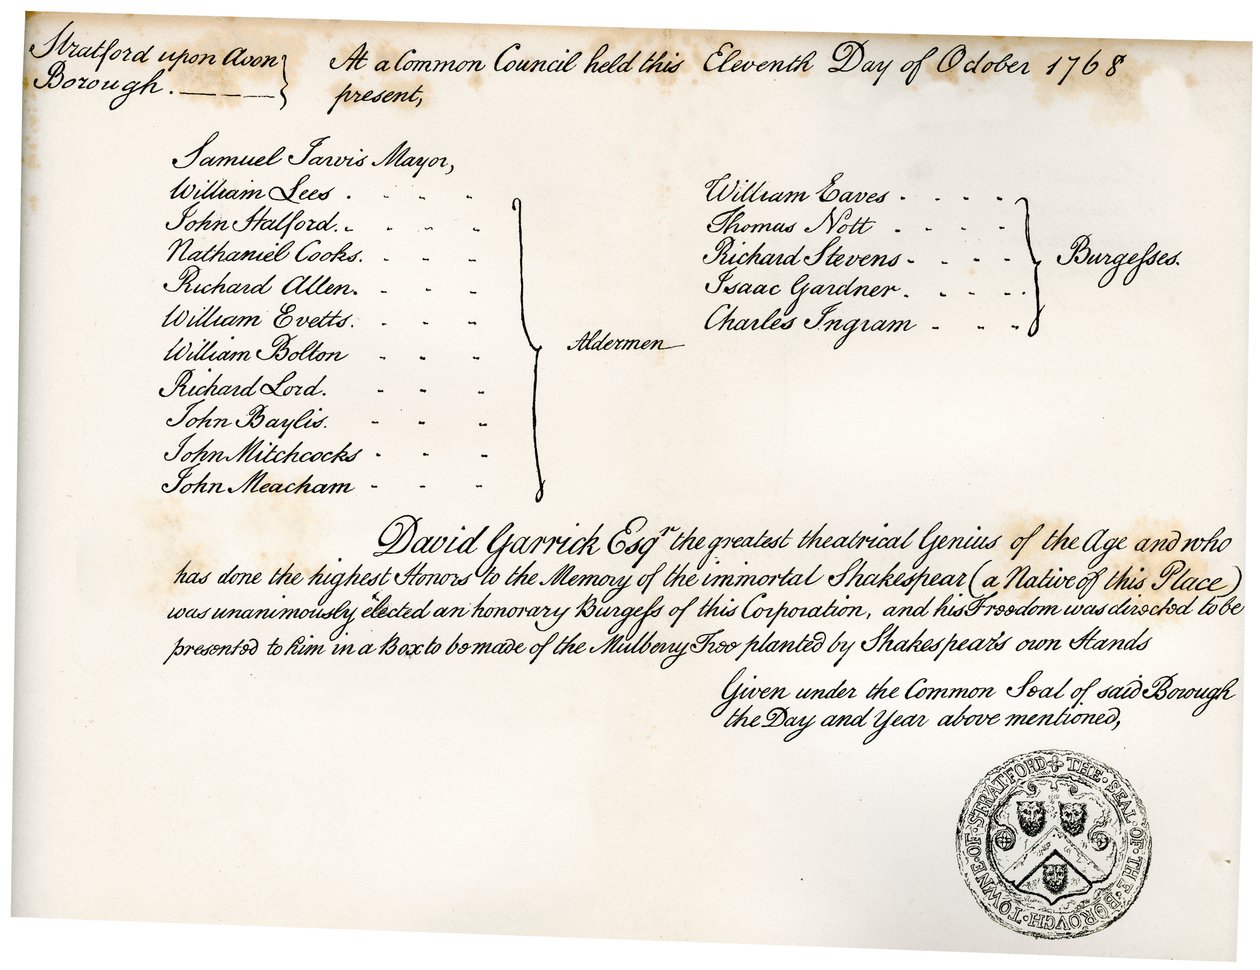 Stratford upon Avon
Borough.
At a Common Council held this Eleventh Day of October 1768
present,
Samuel Jarvis Mayor,
William Lees
John Halford.
Nathaniel Cooks.
Richard Allen.
William Evetts.
William Bolton
Richard Lord.
John Baylis.
John Mitchcocks
John Meacham
Aldermen
William Eaves
Thomas Nott
Richard Stevens
Isaac Gardner.
Charles Ingram
Burgesses.
David Garrick Esqr the greatest theatrical Genius of the Age and who
has done the highest Honors to the Memory of the immortal Shakespear (a Native of this Place)
was unanimously elected an honorary Burgess of this Corporation, and his Freedom was directed to be
presented to him in a Box to be made of the Mulberry Tree planted by Shakespear's own Hands
Given under the Common Seal of said Borough
the Day and Year above mentioned,
THE·SEAL·OF·THE·BOROVGH·TOWNE·OF·STRATFORD